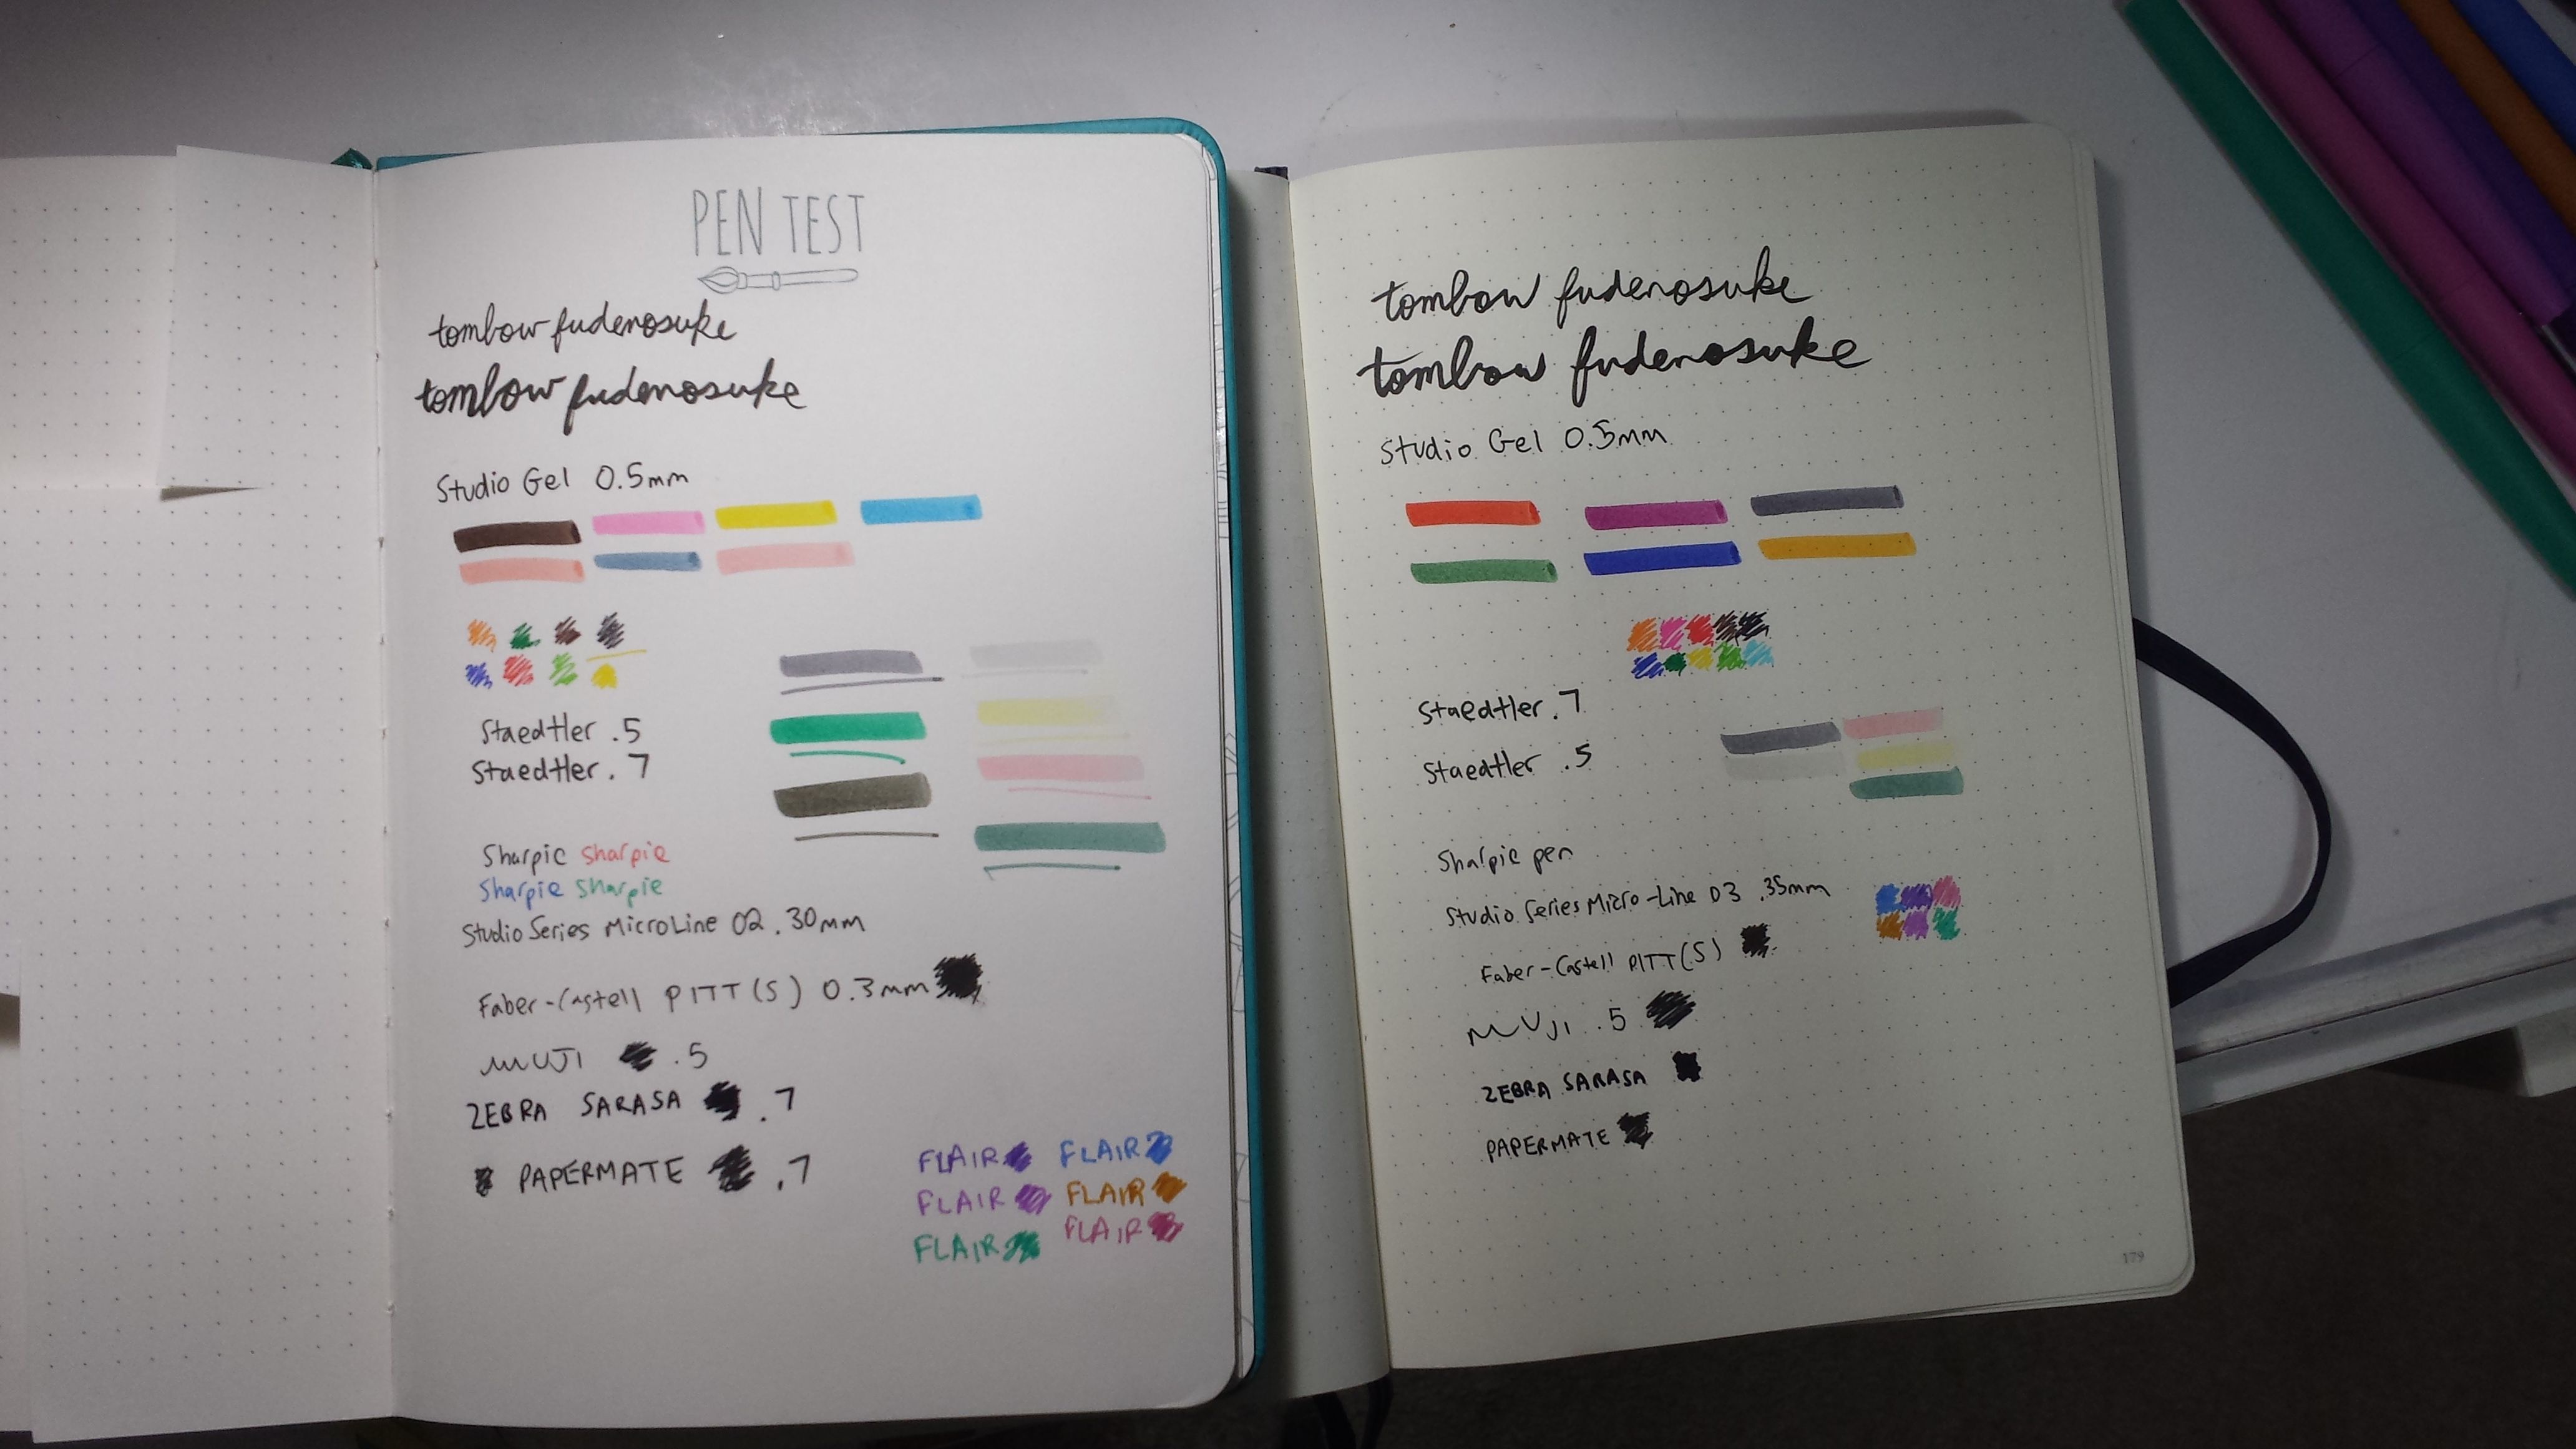 PEN TEST
tombow fudenosuke
tombow fudenosuke
Studio Gel 0.5mm
Staedtler .5
Staedtler .7
Sharpie sharpie
Sharpie sharpie
Studio Series MicroLine 02 .30mm
Faber-Castell PITT (S) 0.3mm
MUJI .5
ZEBRA SARASA .7
PAPERMATE .7
FLAIR FLAIR
FLAIR FLAIR
FLAIR FLAIR
tombow fudenosuke
tombow fudenosuke
Studio Gel 0.5mm
Staedtler .7
Staedtler .5
Sharpie pen
Studio Series Micro-Line 03 .35mm
Faber-Castell PITT (S)
MUJI .5
ZEBRA SARASA
PAPERMATE
179